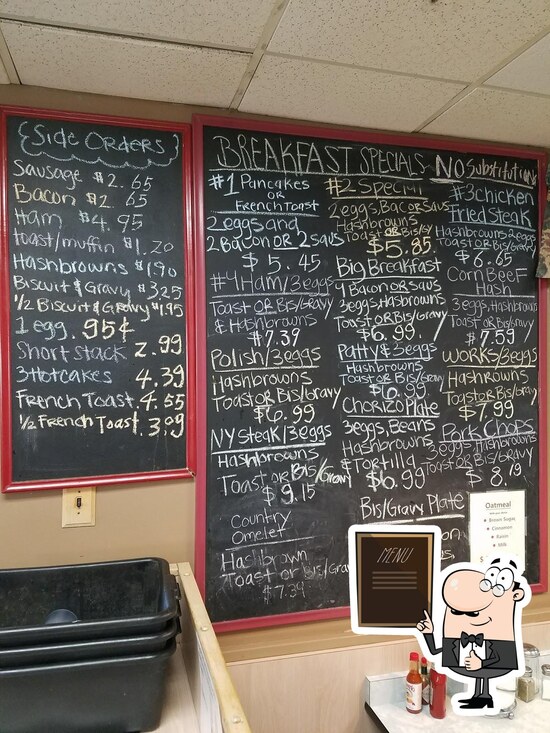 Side Orders
Sausage $2.65
Bacon $2.65
Ham $4.95
toast/muffin $1.20
Hashbrowns $1.90
Biscuit & Gravy $3.25
1/2 Biscuit & Gravy $1.95
1 egg. 95¢
Short stack 2.99
3 Hotcakes 4.39
French Toast 4.55
1/2 French Toast 3.99
BREAKFAST SPECIALS ~ NO Substitutions
#1 Pancakes
OR
French Toast
2 eggs and
2 Bacon OR 2 saus
$5.45
#4 Ham/3 eggs
Toast OR Bis/Gravy
& Hashbrowns
$7.39
Polish/3 eggs
Hashbrowns
Toast OR Bis/Gravy
$6.99
NY Steak/3 eggs
Hashbrowns
Toast OR Bis/Gravy
$9.15
Country
Omelet
Hashbrown
Toast or Bis/Gra
$7.39
#2 Special
2 eggs, Bac or Saus
Hashbrowns
Toast OR Bis/Gy
$5.85
Big Breakfast
4 Bacon OR Saus
3 eggs, Hashbrowns
Toast OR Bis/Gravy
$6.99
Patty & 3 eggs
Hashbrowns
Toast OR Bis/Gravy
$6.99
Chorizo Plate
3 eggs, Beans
Hashbrowns
& Tortilla
$6.99
Bis/Gravy Plate
#3 chicken
fried steak
Hashbrowns 2 eggs
Toast OR Bis/Gravy
$6.65
Corn Beef
Hash
3 eggs, Hashbrowns
Toast OR Bis/Gravy
$7.59
WORKS/3 eggs
Hashrowns
Toast OR Bis/Gravy
$7.99
Pork Chops
3 eggs, Hashbrowns
Toast OR Bis/Gravy
$8.19
Oatmeal
Brown Sugar
Cinnamon
Raisin
Milk
MENU